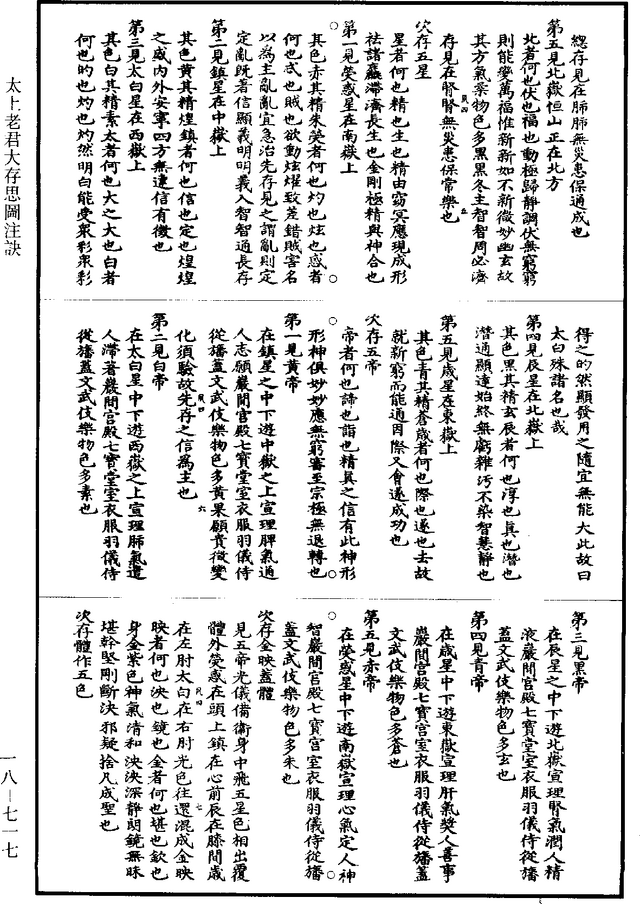 太上老君大存思圖注訣
總存見在肺肺無災患保通成也
第五見北嶽恒山正在北方
北者何也伏也福也動極歸靜調伏無窮窮
則能變萬福惟新新如不新微妙幽玄故
其方氣衆物色多黑黑冬主智智周必濟
存見在腎腎無災患保常樂也
次存五星
星者何也精也生也精由窈冥應現成形
祛諸麤滯濟長生也金剛極精與神合也
第一見熒惑星在南嶽上
其色赤其精朱熒者何也灼也炫也惑者
何也忒也賊也欲動炫燿致差錯賊害名
以為主亂亂宜急治先存見之謂亂則定
定亂既者信顯義明明義入智智通長存
第二見鎮星在中嶽上
其色黃其精煌鎮者何也信也定也煌煌
之盛內外安寧四方無違信有徵也
第三見太白星在西嶽上
其色白其精素太者何也大之大也白者
何也旳也灼也灼然明白能受衆彩衆彩
得之的然顯發用之隨宜無能大此故曰
太白殊諸名也哉
第四見辰星在北嶽上
其色黑其精玄辰者何也淳也真也潛也
潛通顯達始終無虧雜汚不染智慧靜也
第五見歲星在東嶽上
其色青其精蒼歲者何也際也遂也去故
就新窮而能通因際又會遂成功也
次存五帝
帝者何也諦也詣也精真之信有此神形
形神俱妙妙應無窮審至宗極無退轉也
第一見黃帝
在鎮星之中下遊中嶽之上宣理脾氣適
人志願嚴間宮殿七寶堂室衣服羽儀侍
從旛蓋文武伎樂物色多黃果顧貴徵變
化須驗故先存之信為主也
第二見白帝
在太白星中下遊西嶽之上宣理肺氣遣
人滯著嚴間宮殿七寶堂室衣服羽儀侍
從旛蓋文武伎樂物色多素也
第三見黑帝
在辰星之中下遊北嶽宣理腎氣潤人精
液嚴間宮殿七寶堂室衣服羽儀侍從旛
蓋文武伎樂物色多玄也
第四見青帝
在歲星中下遊東嶽宣理肝氣獎人善事
嚴間宮殿七寶宮室衣服羽儀侍從旛蓋
文武伎樂物色多蒼也
第五見赤帝
在熒惑星中下遊南嶽宣理心氣定人神
智嚴間宮殿七寶宮室衣服羽儀侍從旛
蓋文武伎樂物色多朱也
次存金映蓋體
見五帝光儀備衛身中飛五星色相出覆
體外熒惑在頭上鎮在心前辰在膝間歲
在左肘太白在右肘光色往還混成金映
映者何也泱也鏡也金者何也堪也欽也
身金紫色神氣清和泱泱深靜朗鏡無昧
堪幹堅剛斷決邪疑捨凡成聖也
次存體作五色
一八—七一七